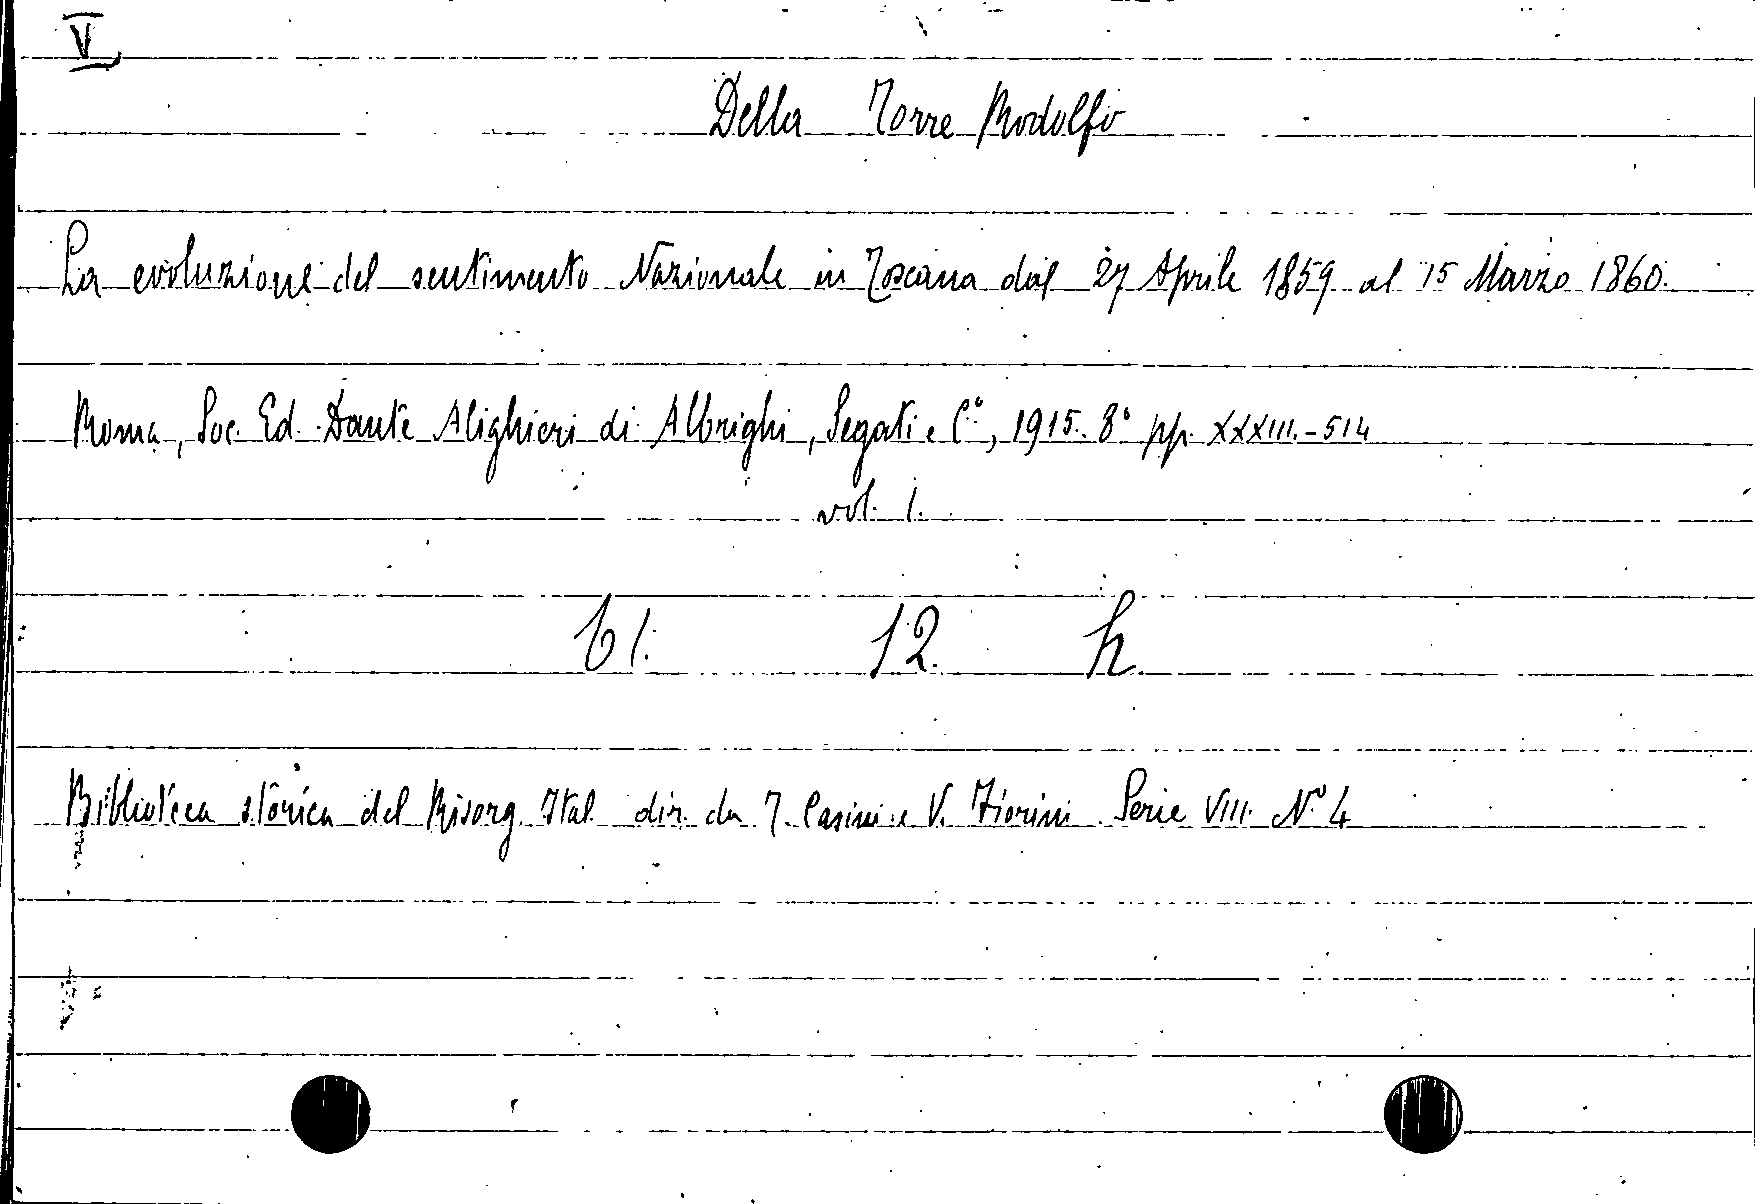 V
Della Torre Rodolfo
La evoluzione del sentimento Nazionale in Toscana dal 27 Aprile 1859 al 15 Marzo 1860.
Roma, Soc. Ed. Dante Alighieri di Albrighi, Segati e C°, 1915. 8° pp. XXXIII.-514
vol. 1.
61. 12. h.
Biblioteca storica del Risorg. Ital. dir. da T. Casini e V. Fiorini. Serie VIII. N° 4